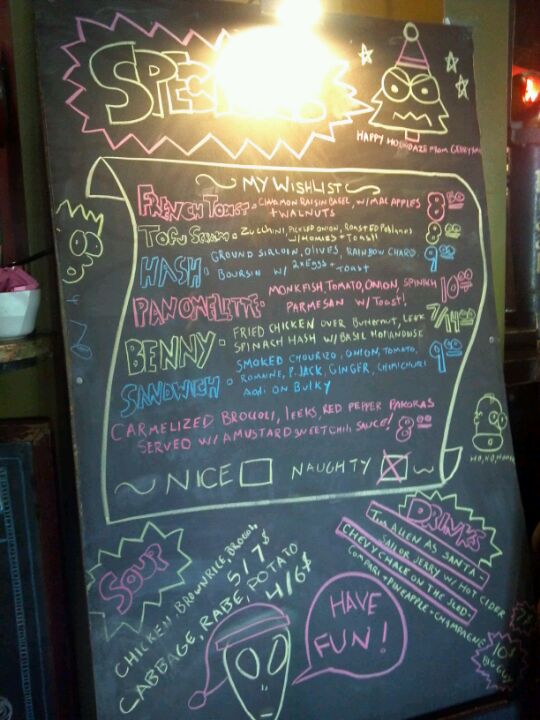 SPEC
HAPPY HOLIDAZE FROM
MY WISHLIST
FRENCH TOAST - CINNAMON RAISIN BAGEL, W/ APPLES 8.50
+ WALNUTS
TOFU SCRAM - ZUCCHINI, PICKLED ONION, ROASTED POBLANOS 8.00
W/ HOMIES + TOAST!
HASH - GROUND SIRLOIN, OLIVES, RAINBOW CHARD, 9.00
BOURSIN W/ 2XEGGS + TOAST
PANOMELETTE - MONKFISH, TOMATO, ONION, SPINACH 10.00
PARMESAN W/ TOAST!
BENNY - FRIED CHICKEN OVER BUTTERNUT, LEEK 7/14.00
SPINACH HASH W/ BASIL HOLLANDAISE
SANDWICH - SMOKED CHOURIZO, ONION, TOMATO, 9.00
ROMAINE, P. JACK, GINGER, CHIMICHURI
AOLI ON BULKY
CARMELIZED BROCCOLI, LEEKS, RED PEPPER PAKORAS
SERVED W/ A MUSTARD SWEET CHILI SAUCE! 8.00
NICE NAUGHTY
HO, HO, HO
SOUP
CHICKEN, BROWN RICE, BROCCOLI
5/7$
CABBAGE, RABE, POTATO
4/6$
DRINKS
TIM ALLEN AS SANTA -
SAILOR JERRY W/ HOT CIDER
CHEVY CHASE ON THE SLED -
CAMPARI + PINEAPPLE + CHAMPAGNE
10$
HAVE
FUN!